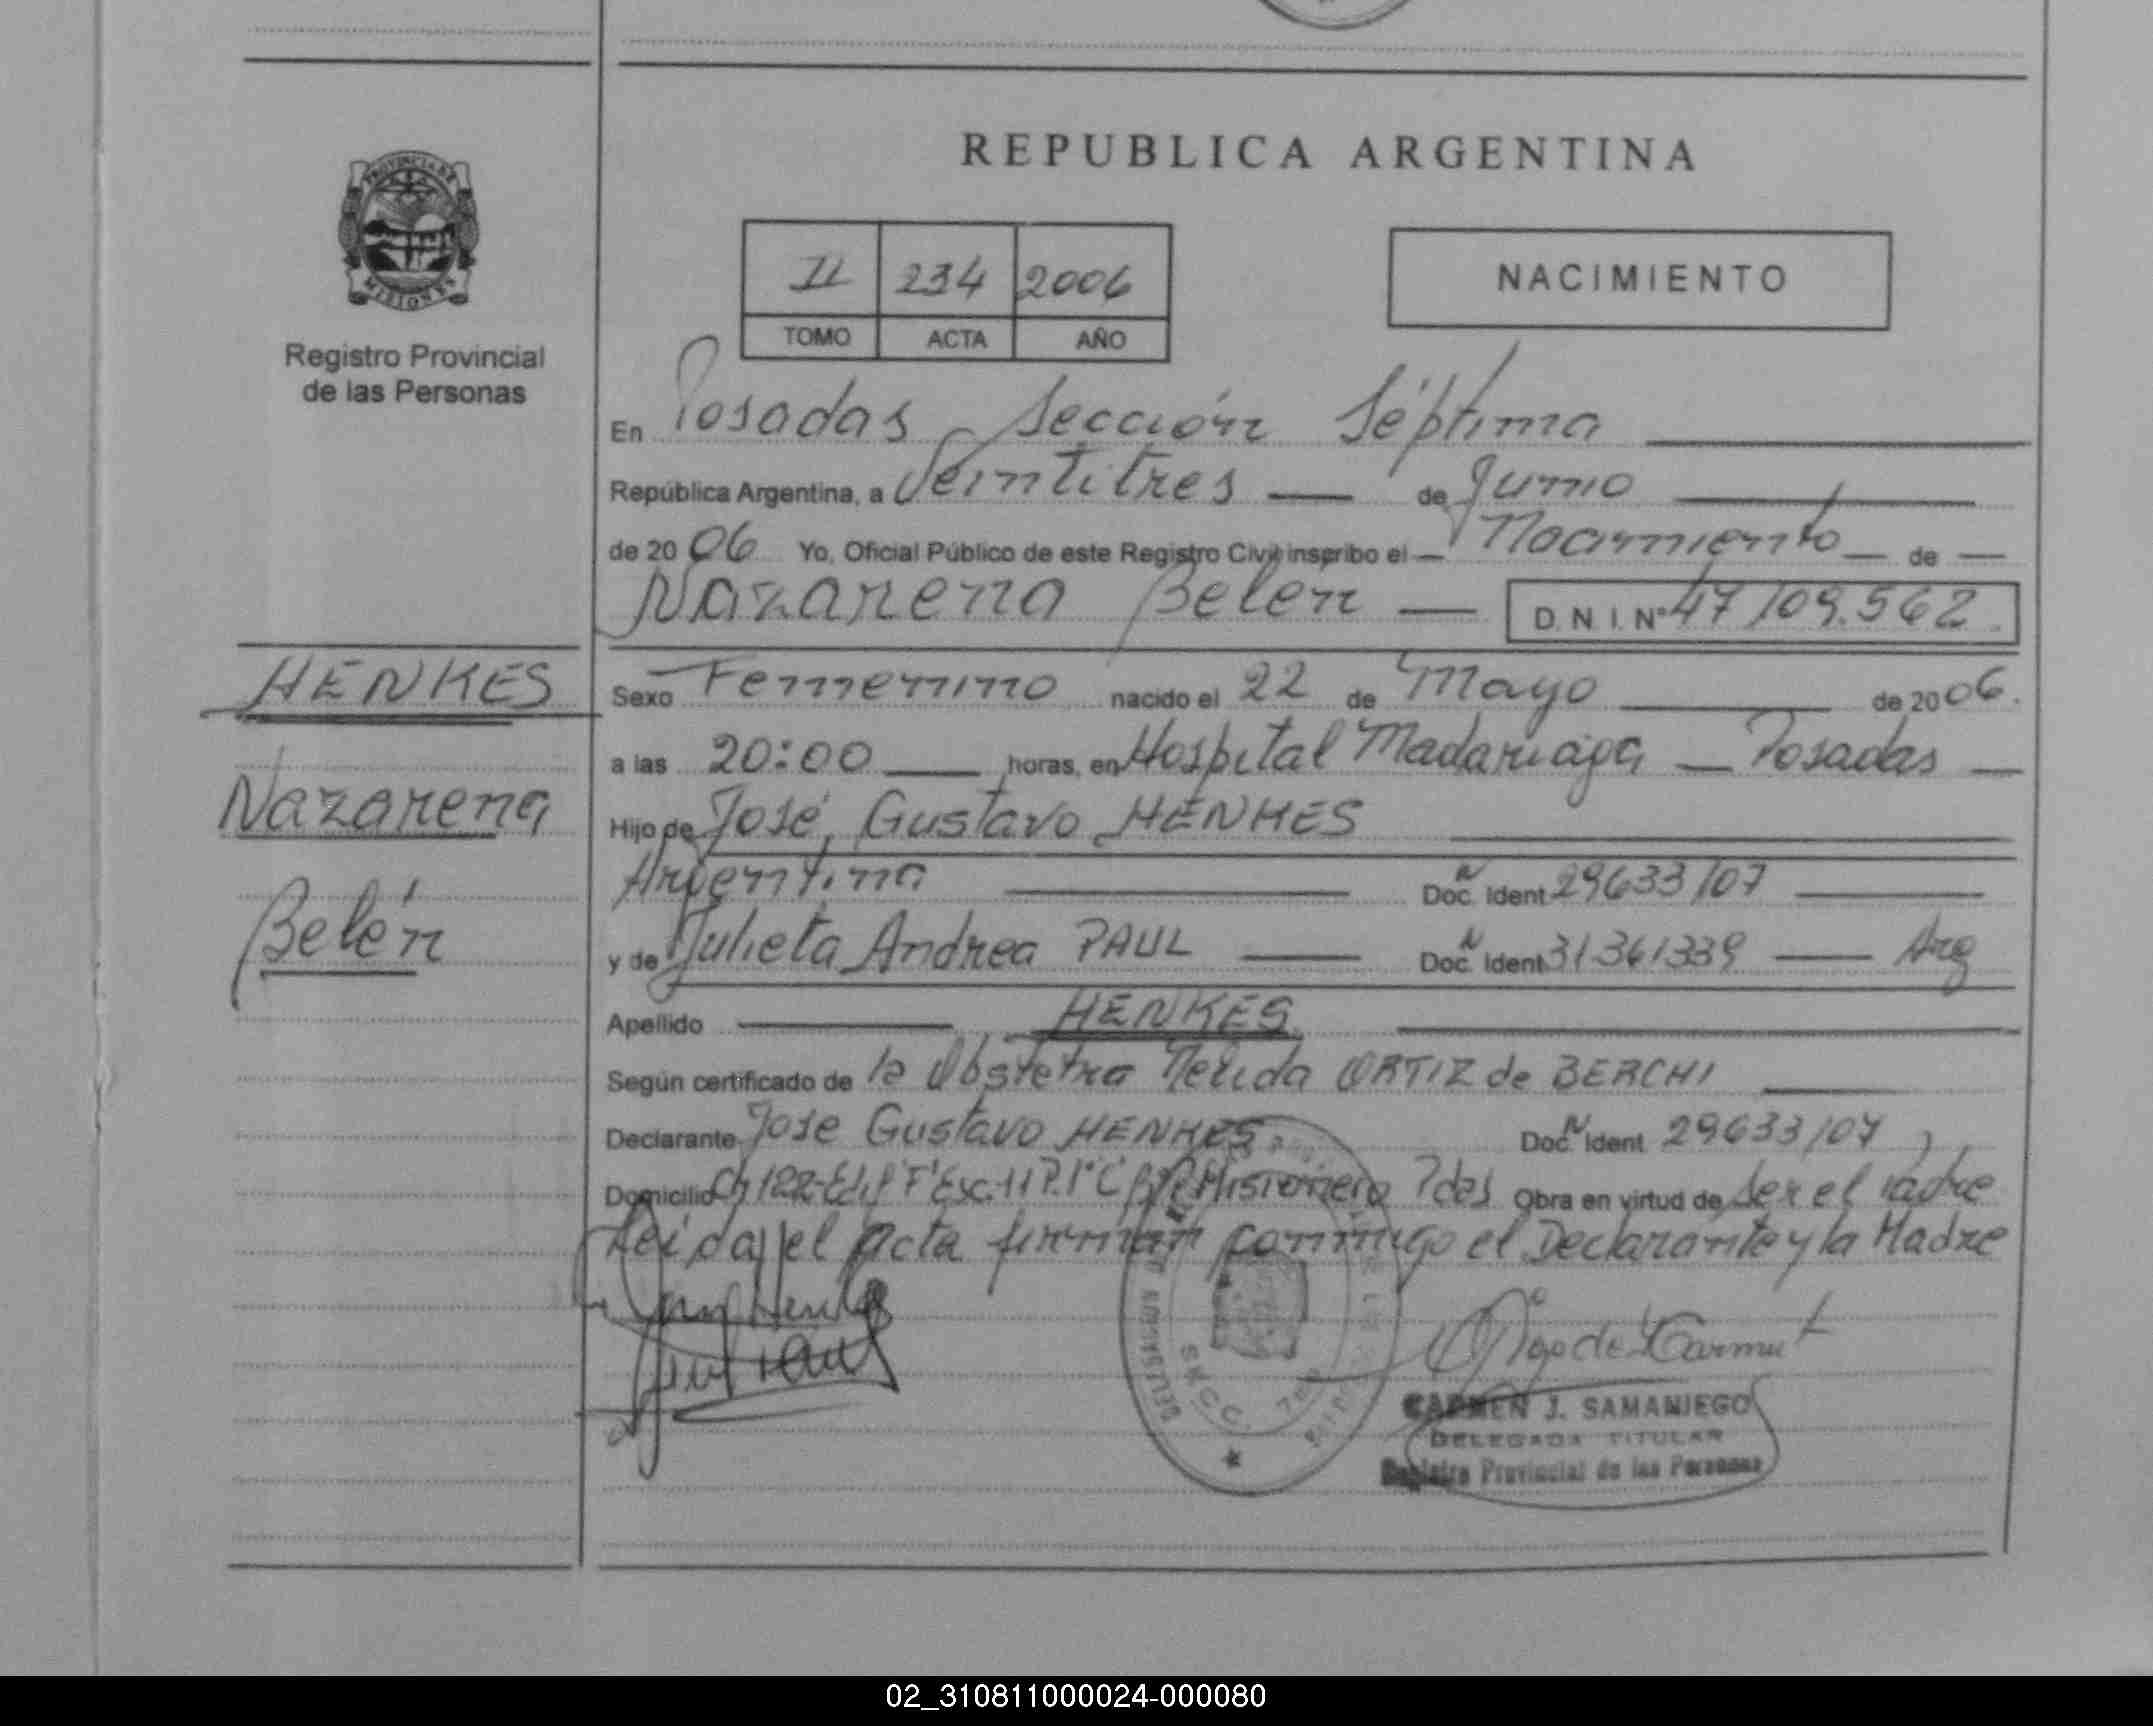 REPUBLICA ARGENTINA
PROVINCIA DE
MISIONES
Registro Provincial
de las Personas
II 234 2006
TOMO ACTA AÑO
NACIMIENTO
En Posadas Sección Séptima
República Argentina, a Veintitres de Junio
de 20 06 Yo, Oficial Público de este Registro Civil inscribo el Nacimiento de
Nazarena Belén D.N.I. Nº 47109.562
HENKES
Nazarena
Belén
Sexo Femenino nacido el 22 de Mayo de 2006.
a las 20:00 horas, en Hospital Madariaga Posadas
Hijo de José Gustavo HENKES
Argentina Doc. Ident 29633107
y de Julieta Andrea PAUL Doc. Ident 31361339 Arg
Apellido HENKES
Según certificado de la Obstetra Nelida ORTIZ de BERCHI
Declarante Jose Gustavo HENKES Doc. Ident. 29633107
Domicilio Ch 122-Edif "F" Esc. 11 P. 1º C Misionero Pdas Obra en virtud de ser el Padre
Leida el acta firman conmigo el Declarante y la Madre
CARMEN J. SAMANIEGO
DELEGADA TITULAR
Registro Provincial de las Personas
02_310811000024-000080